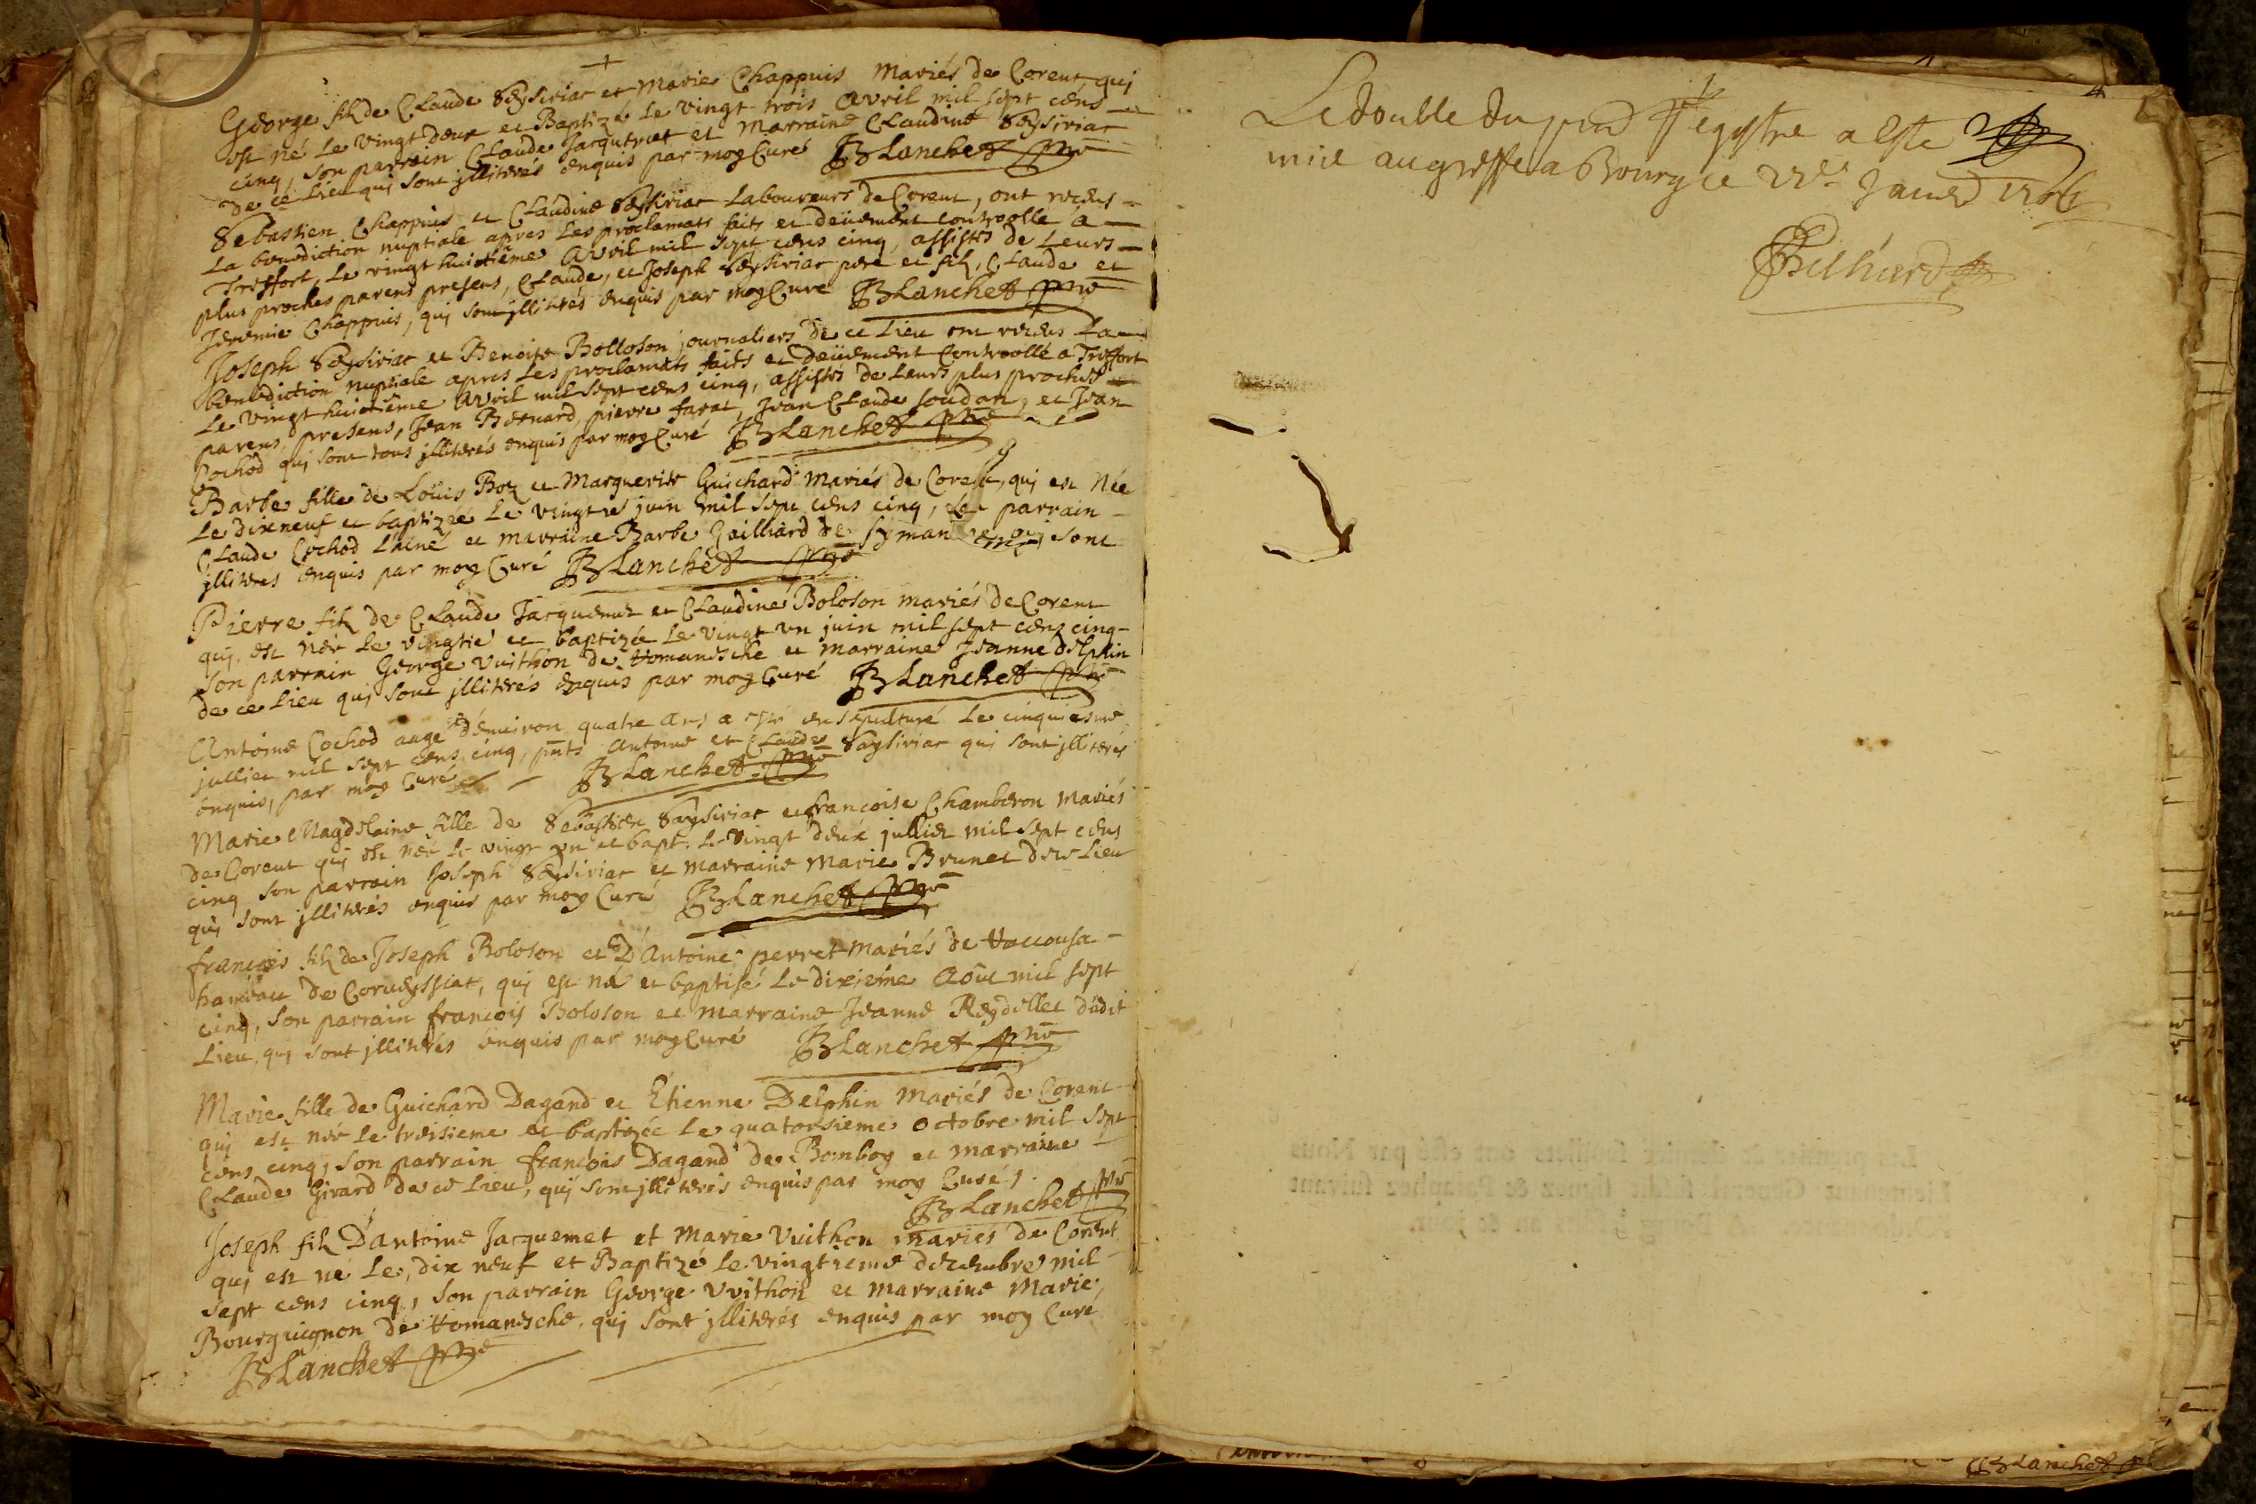 George fils de Claude Seysiriat et Marie Chappuis Mariés de Corent qui
est né le vingt deux et Baptizé le vingt trois Avril mil sept cens
cinq, son parrain Claude Jacquemet et Marraine Claudine Seysiriat
de ce lieu qui sont jllitérés enquis par moy Curé JBlanchet ptre
Sebastien Chappuis et Claudine Seysiriat Laboureurs de Corent, ont receus
la benediction nuptiale apres les proclamats faits et deüement controollé a
Treffort, le vingt huictième Avril mil sept cens cinq, assistés de Leurs
plus proches parens presens, Claude, et Joseph Seysiriat pere et fils, Claude et
Jeremie Chappuis, qui sont jllitérés enquis par moy Curé JBlanchet ptre
Joseph Seysiriat et Benoite Bolloson journaliers de ce Lieu ont receus La
benediction nuptiale apres Les proclamats faits et deüement Controollé a Treffort
Le vingt huictième Avril mil sept cens cinq, assistés de Leurs plus proches
parens presens, Jean Bernard, pierre farat, Jean Claude Soudan, et Jean
Cochod qui sont tous jllitérés enquis par moy Curé JBlanchet ptre
Barbe fille de Loüis Boz et Marguerite Guichard Mariés de Corent, qui est Née
Le dixneuf et baptizée Le vingtie juin mil sept cens cinq, Le parrain
Claude Cochod L'ainé et marraine Barbe Jailliard de Symandre qui sont
jllitérés enquis par moy Curé JBlanchet ptre
Pierre fils de Claude Jacquemet et Claudine Boloson mariés de Corent
qui est née Le vingtie et baptizée Le vingt vn juin mil sept cens cinq
son parrain George Vuithon de Romanesche et marraine Jeanne delphin
de ce Lieu qui sont jllitérés enquis par moy Curé JBlanchet ptre
Antoine Cochod aagé d'enuiron quatre ans a esté ensepulturé Le cinquiesme
juillet mil sept cens cinq, pnts Antoine et Claude Saysiriat qui sont jllitérés
enquis, par moy Curé JBlanchet ptre
Marie Magdelaine fille de Sebastien Saysiriat et francoise Chamberon Mariés
de Corent qui est née le vingt vn et bapt. Le Vingt deux juillet mil sept cens
cinq son parrain Joseph Seysiriat et marraine Marie Brunet de ce Lieu
qui sont jllitérés enquis par moy Curé JBlanchet ptre
francois fils de Joseph Boloson et D'Antoine perret Mariés de
hameau de Corueyssiat, qui est né et baptisé Le dixième Aout mil sept
cinq, son parrain francois Boloson et marraine Jeanne Reydellet dudit
Lieu, qui sont jllitérés enquis par moy Curé JBlanchet ptre
Marie fille de Guichard Dagand et Etienne Delphin Mariés de Corent
qui est née Le treisieme et baptizée Le quatorsieme Octobre mil sept
cens cinq, son parrain francois Dagand de Bomboy et marraine
Claude Girard de ce Lieu, qui sont jllitérés enquis par moy Curé
JBlanchet ptre
Joseph fils D'antoine Jacquemet et Marie Vuithon mariés de Corent
qui est né Le, dix neuf et Baptizé Le vingtieme decembre mil
sept cens cinq, son parrain George Vuithon et marraine Marie,
Bourguignon de Romanesche, qui sont jllitérés enquis par moy Curé
JBlanchet ptre
Le double du pnt Regystre a esté
mis au greffe a Bourg ce Janvr 1706
JBlanchet